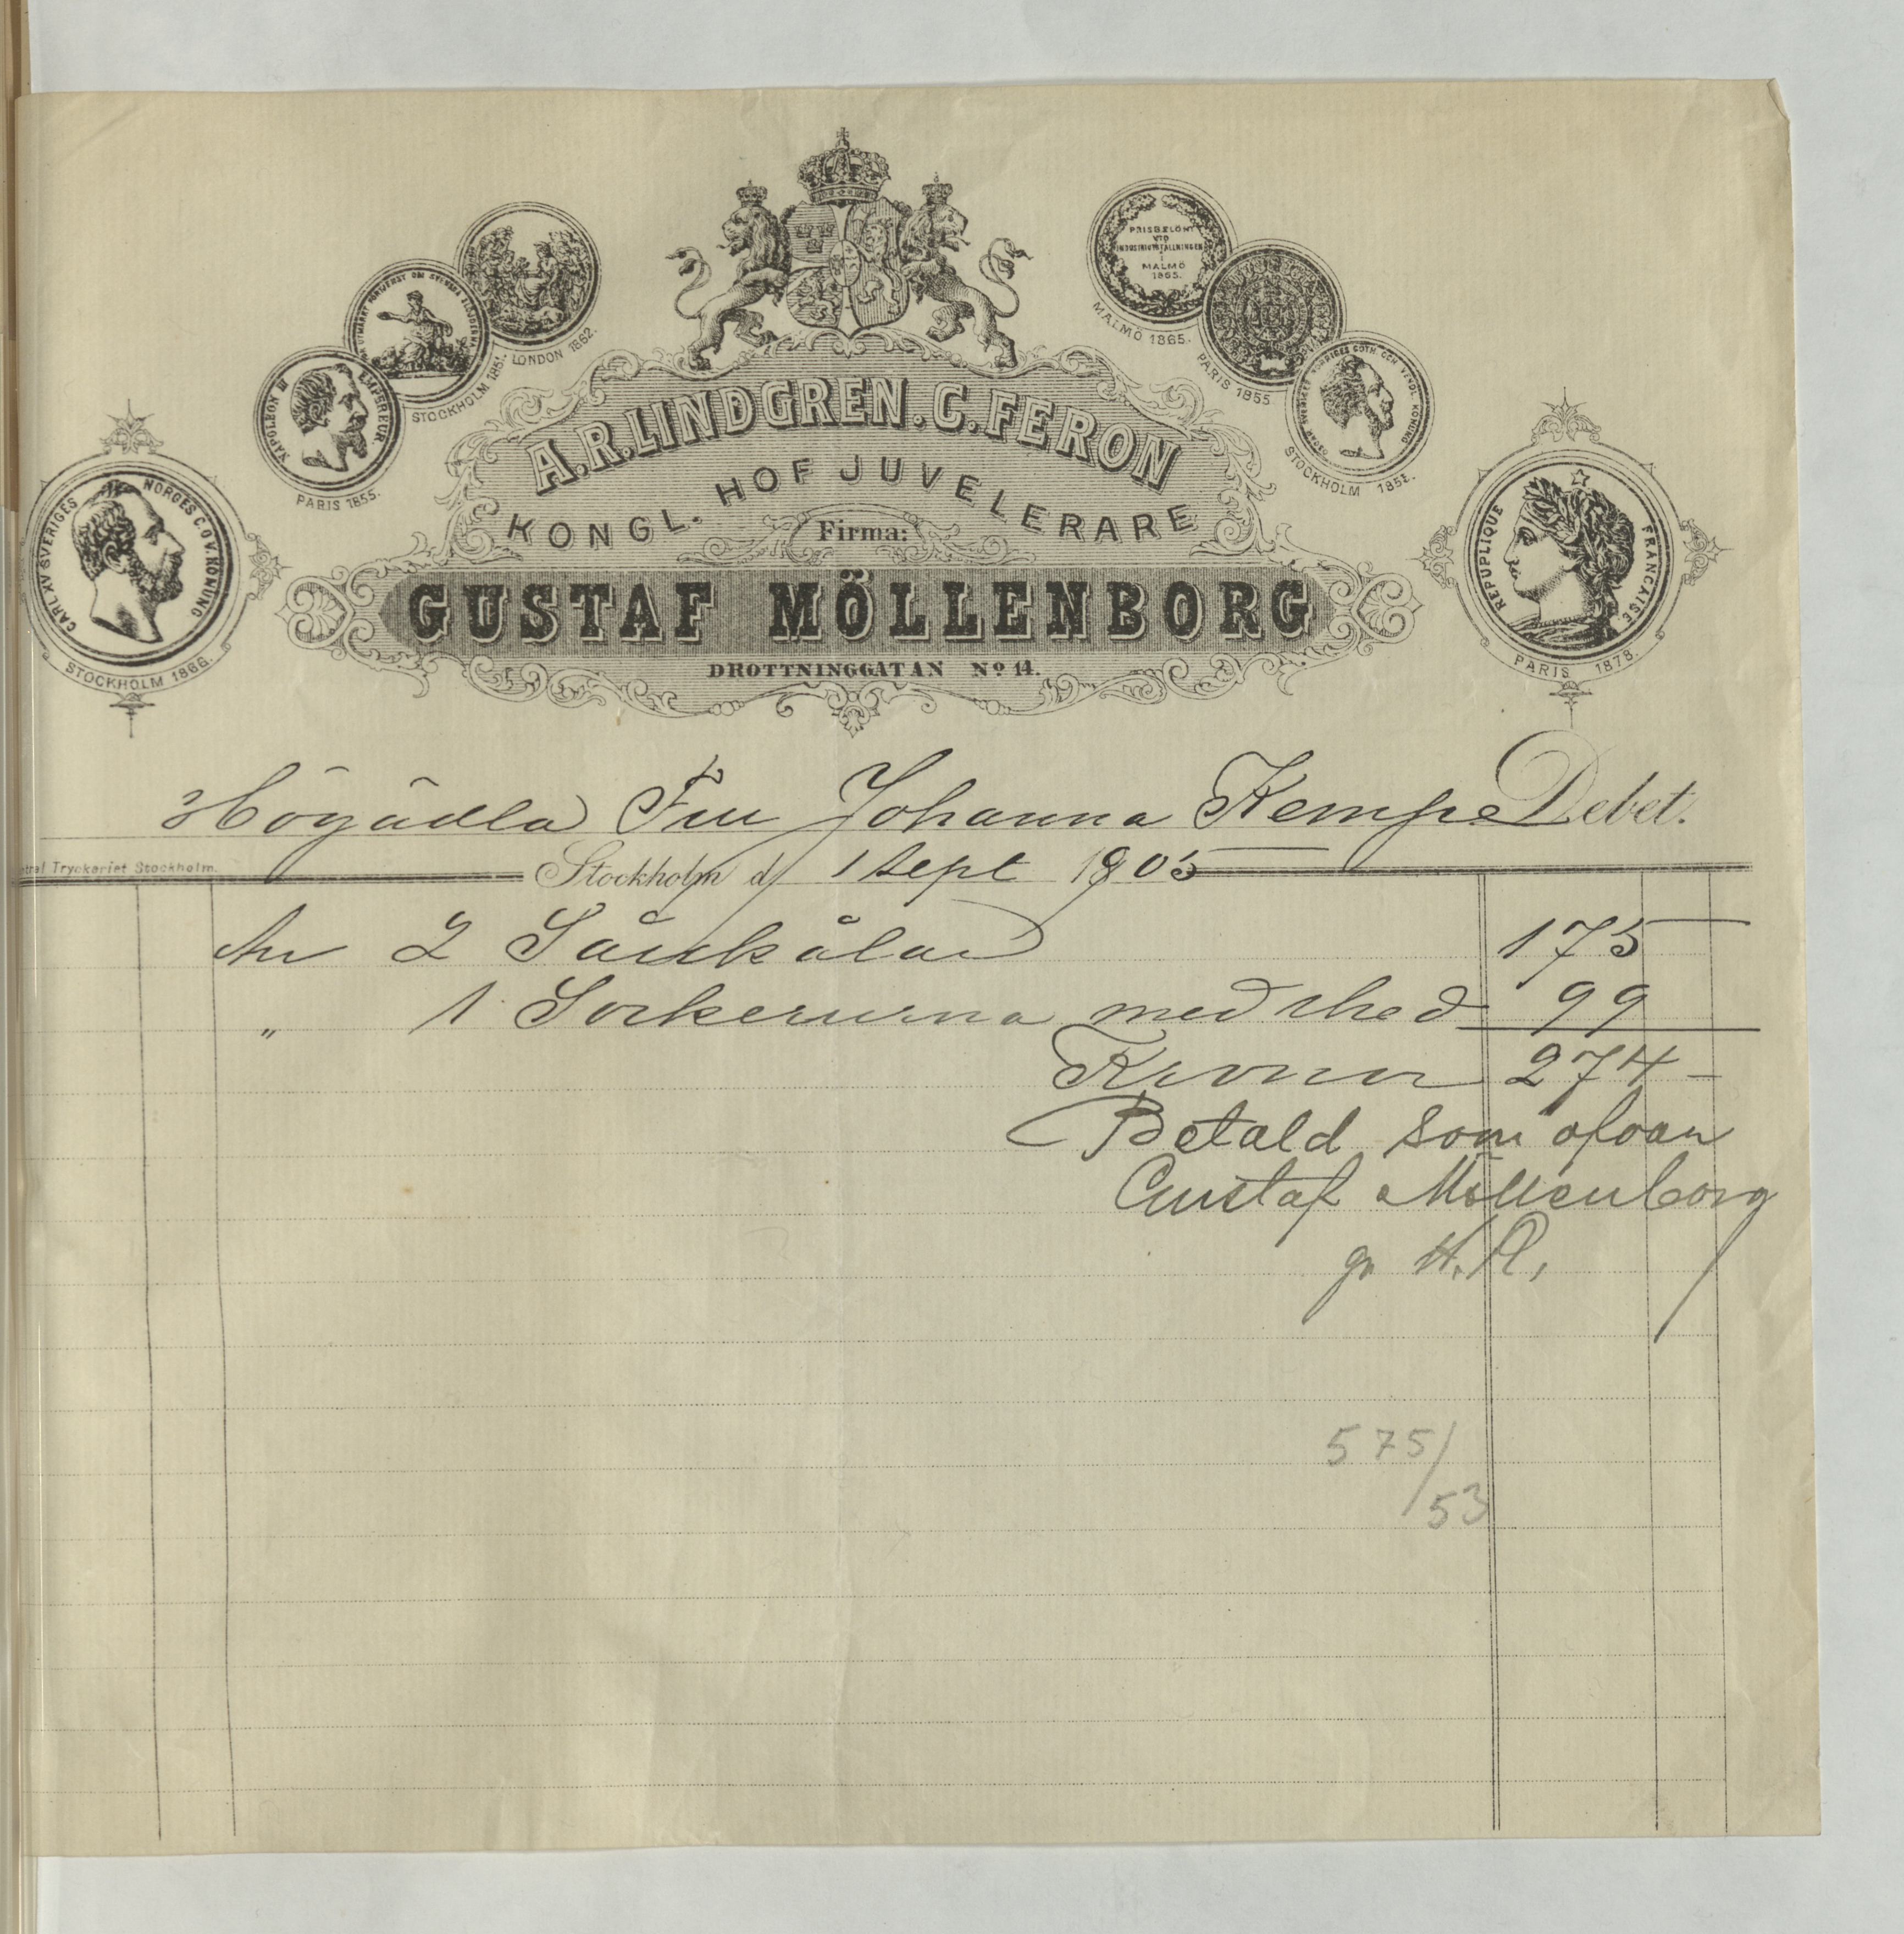 PRISBELÖNT
VID
INDUSTRIUTSTÄLLNINGEN
I
MALMÖ
1865.
MALMÖ 1865.
PARIS 1855
STOCKHOLM 185
LONDON 1862.
STOCKHOLM 1851.
NAPOLEON III EMPEREUR
PARIS 1855.
CARL XV SVERIGES NORGES G. O V. KONUNG
STOCKHOLM 1866.
REPUPLIQUE FRANCAISE
PARIS 1878.
A.R.LINDGREN. C.FERON
KONGL. HOF JUVELERARE
Firma:
GUSTAF MÖLLENBORG
DROTTNINGGATAN No 14.
Högädla Fru Johanna Kempe Debet.
tral Tryckeriet Stockholm.
Stockholm d 1 Sept 1905
An 2 Såsskålar 175
" 1 Sockerurna med sked 99
Kronor 274 –
Betald som ofvan
Gustaf Möllenborg
gm H.A,
575/
53